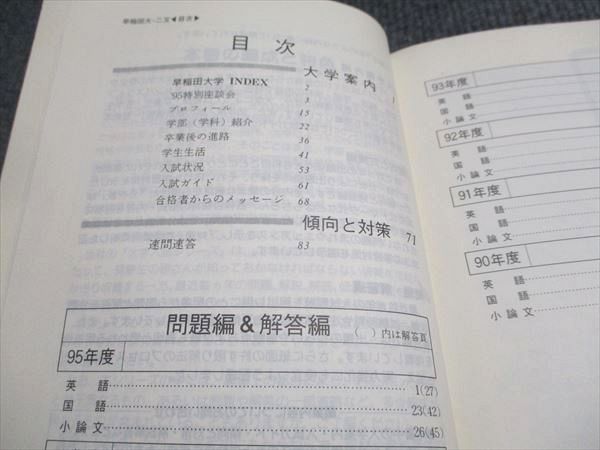 早稲田大-二文◀目次▶
目 次
大学案内 1
早稲田大学 INDEX 2
'95特別座談会 3
プロフィール 15
学部(学科)紹介 22
卒業後の進路 36
学生生活 41
入試状況 53
入試ガイド 61
合格者からのメッセージ 68
傾向と対策 71
速問速答 83
問題編&解答編 ( )内は解答頁
95年度
英 語 1(27)
国 語 23(42)
小論文 26(45)
93年度
英 語
国 語
小論文
92年度
英 語
国 語
小論文
91年度
英 語
国 語
小論文
90年度
英 語
国 語
小論文